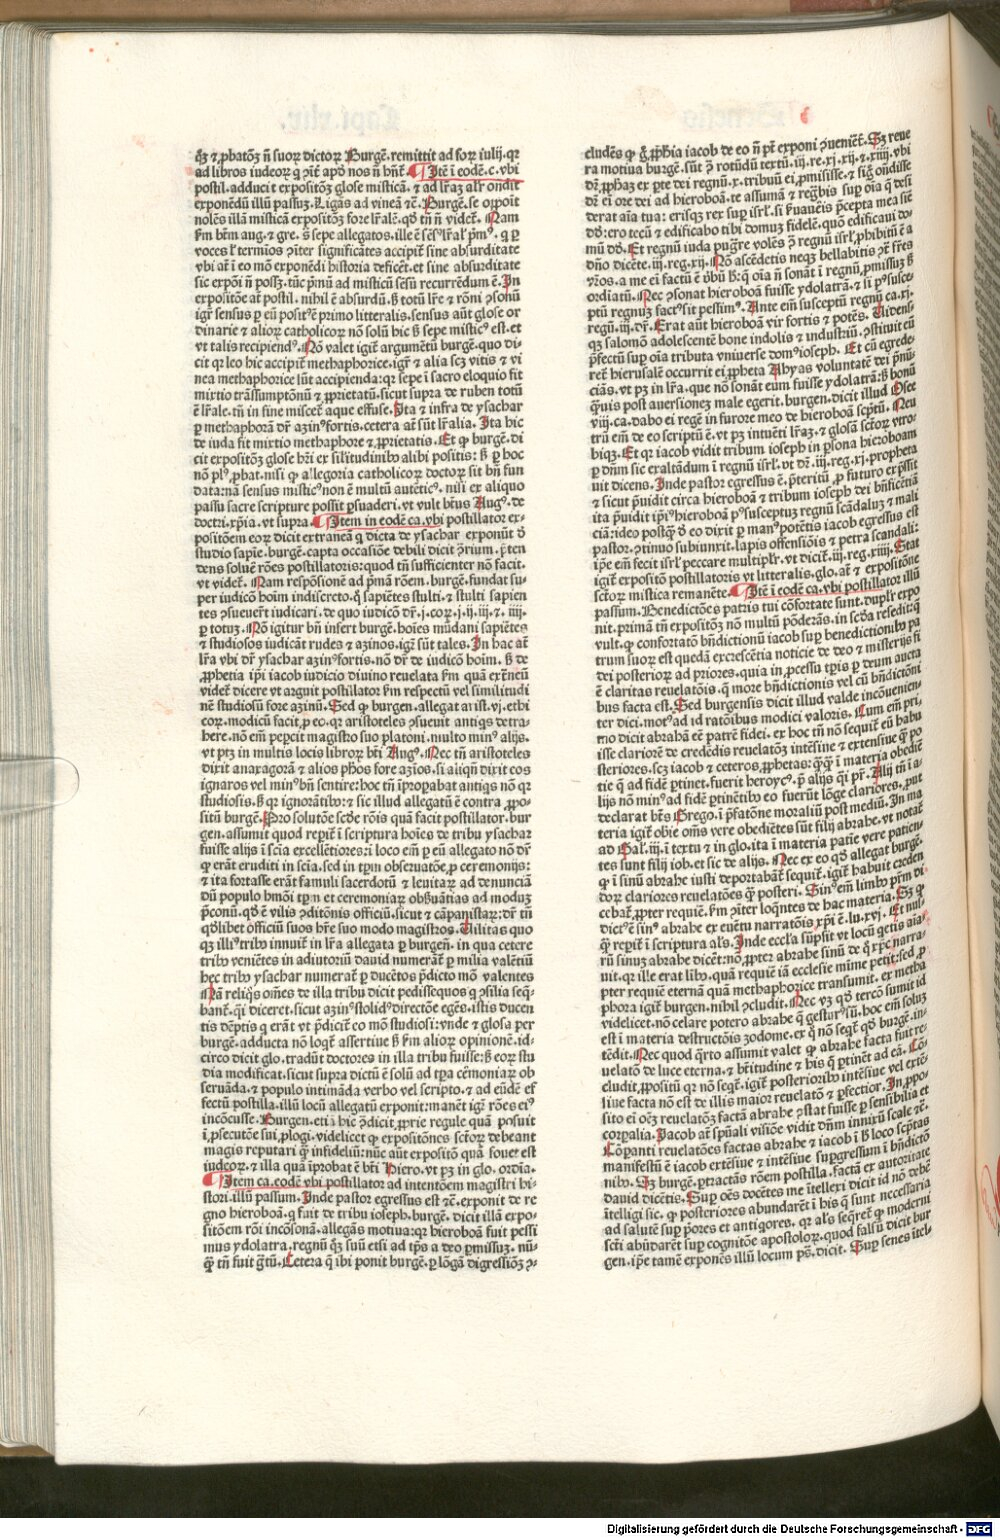 q̄ꝫ ⁊ ꝓbatōꝫ nͫ suoꝝ dictoꝝ Burgē. remittit ad foꝝ iulij. qꝛ
ad libros iudeoꝝ apd̄ nos nͫ hn̄t. ¶ Itē ī eodē. c. vbi
postil. adducit expositōꝫ glose misticā. ⁊ ad lr̄aꝫ alr̄ ondit
exponēdū illū passuꝫ. Ligās ad vineā ⁊c̄. Burgē. se opponit
nolēs illā misticā expositōꝫ fore lr̄alē. qd̄ tn̄ nͫ videt᷑. Nam
voces ⁊ termīos significātes accipit᷑ sine absurditate
vbi at̄ ī eo mō exponēdi historia deficēt. et sine absurditate
sic expōi nͫ possꝫ. tūc pͥmū ad misticū sēsū recurrēdum ē. In
expositōe at̄ postil. nihil ē absurdū. sꝫ totū lr̄e ⁊ rōni
dinarie ⁊ alioꝝ catholicoꝝ nō solū hic sꝫ sepe misticꝰ est. et
vt talis recipiendꝰ. Nō valet igit᷑ argumētū burgē. quo di-
cit qꝛ leo hic accipit᷑ methaphorice. igr̄ ⁊ alia scꝫ vitis ⁊ vi
nea methaphorice sūt accipienda: qꝛ sepe ī sacro eloquio fit
mixtio trāssumptōnū ⁊ ꝓprietatū. sicut supra de ruben totū
ē lr̄ale. tn̄ in fine miscet᷑ aque effuse. Ita ⁊ infra de ysachar
ꝑ methaphorā dr̄ azinꝰ fortis. cetera at̄ sūt lr̄alia. Ita hic
de iuda fit mixtio methaphore ⁊ ꝓprietatis. Et ꝙ burgē. di
cit expositōꝫ glose br̄i ex silitudinibꝰ alibi positis: sꝫ ꝑ hoc
nō plꝰ ꝓbat. nisi ꝙ allegoria catholicoꝝ doctoꝝ sit bn̄ fun
data: nā sensus misticꝰ non ē multū autēticꝰ. nisi ex aliquo
passu sacre scripture possit ꝑsuaderi. vt vult btūs Augꝰ. de
doctri. xp̄ia. vt supra. ¶ Item in eodē ca. vbi postillator ex-
positōem eoꝝ dicit extraneā q̄ dicta de ysachar exponūt d̄
studio sapīe. burgē. capta occasiōe debili dicit ꝯrium. p̄ten
dens soluē rōes postillatoris: quod tn̄ sufficienter nō facit.
vt videt᷑. Nam respōsionē ad pͥmā rōem. burgē. fundat su-
per iudicō hoīm indiscreto. q̄ sapiētes stulti. ⁊ stulti sapien
tes ꝯsueuer̄t iudicari. de quo iudicō dr̄. j. coꝝ. j. ij. iij. ⁊. iiij.
ꝑ totuꝫ. Nō igitur bn̄ infert burgē. hoīes mūdani sapiētes
⁊ studiosos iudicāt rudes ⁊ azinos. igr̄ sūt tales. In hac at̄
lr̄a vbi dr̄ ysachar azinꝰ fortis. nō dr̄ de iudicō hoīm. sꝫ de
ꝓphetia ip̄i iacob iudicio diuino reuelata
videt᷑ dicere vt arguit postillator respectū vel similitudi
nē studiosū fore azinū. Sed ꝙ burgen. allegat arist. vj. ethi
coꝝ. modicū facit. ꝓ eo. qꝛ aristoteles ꝯsueuit antiq̄s detra-
here. nō em̄ peꝑcit magistro suo platoni. multo minꝰ alijs.
vt ptꝫ in multis locis libroꝝ bt̄i Augꝰ. Nec tn̄ aristoteles
dixit anaxagorā ⁊ alios ph̄os fore azīos. si aliqn̄ dixit eos
ignaros vel minꝰ bn̄ sentire: hoc tn̄ īprobabat antiq̄s nō qꝛ
studiosis. sꝫ qꝛ ignorātibꝰ: ⁊ sic illud allegatū ē contra ꝓpo-
sitū burgē. Pro solutōe sēd̄e rōis quā facit postillator. bur
gen. assumit quod reꝑit᷑ ī scriptura hoīes de tribu ysachar
fuisse alijs ī scīa excellētiores: ī loco em̄ ꝑ eū allegato nō dr̄
ꝙ erāt eruditi in scīa. sed in tꝑm obseruatōe ꝓ ceremonijs:
⁊ ita fortasse erāt famuli sacerdotū ⁊ leuitaꝝ ad denunciā
dū populo hmōi tꝑm et ceremoniaꝝ obsꝫuātias ad moduꝫ
p̄conū. qd̄ ē vilis ꝯditōnis officiū. sicut ⁊ cāpanistaꝝ: dr̄ tn̄
qd̄libet officiū suos hr̄e suo modo magistros. Utilitas quo
qꝫ illiꝰ tribꝰ innuit᷑ in lr̄a allegata ꝑ burgen̄. in qua cetere
tribꝰ veniētes in adiutoriū dauid numerāt᷑ ꝑ milia valētiū
hec tribꝰ ysachar numerat᷑ ꝑ ducētos p̄dicto mō valentes
Nā reliq̄s oīnes de illa tribu dicit pedissequos q̄ ꝯsilia seq̄-
bant᷑. q̄si diceret. sicut azinꝰ stolidꝰ directōe egēs. istis ducen
tis dēptis q̄ erāt vt p̄dicit᷑ eo mō studiosi: vnde ⁊ glosa per
burgē. adducta nō loqt᷑ assertiue sꝫ alioꝝ opinionē. id-
circo dicit glo. tradūt doctores in illa tribu fuisse: sꝫ eoꝝ stu
dia modificat. sicut supra dictū ē solū ad tꝑa cēmoniaꝝ ob
seruāda. ⁊ populo intimāda verbo vel scripto. ⁊ ad eūdē ef
fectū postilla. illū locū allegatū exponit: manēt igr̄ rōes eiꝰ
incōcusse. Burgen. eti ī hic ꝯdicit ꝓprie regule quā posuit
ī ꝓsecutōe sui ꝓlogi. videlicet ꝙ expositōnes scr̄toꝝ debeant
magis reputari q̄ infideliū: nūc aūt expositō quā fouet est
iudeoꝝ. ⁊ illa quā īprobat ē bt̄i Hiero. vt pꝫ in glo. ordīa.
¶ Item ca. eodē vbi postillator ad intentōem magistri hi-
stori. illū passum. Inde pastor egressus est ⁊c̄. exponit de re
gno hieroboā. q̄ fuit de tribu ioseph. burgē. dicit illā expo-
sitōem rōi incōsonā. allegās motiua: qꝛ hieroboā fuit pessi
mus ydolatra. regnū qꝫ suū etsi ad tꝑs a deo ꝑmissuꝫ. nū-
q̄ tn̄ fuit grātū. Cetera q̄ ibi ponit burgē. ꝑ lōgā digressiōꝫ ꝯ-
cludēs ꝙ ꝓphīa iacob de eo nͫ pt̄ exponi ꝯueniēt᷑. Sꝫ reue
ra motiua burgē. sūt ꝯ rotūdū textū. iij. re. xj. xij. ⁊. xiiij. vbi
dr̄ ꝓphaꝫ ex ꝑte dei regnū. x. tribuū ei ꝓmisisse. ⁊ sig̅ ondisse
dr̄ ei ore dei ad hieroboā. te assumā ⁊ regͣbis sup oīa q̄ desi
derat aīa tua: erisqꝫ rex sup isrl̄. si ꝯuaueris p̄cepta mea sic
dd̄: ero tecū ⁊ edificabo tibi domuꝫ fidelē. quō edificaui do-
mū dd̄. Et regnū iuda pugre volēs ꝯ regnū isrl̄. ꝓhibitū ē a
dn̄o dicēte. iij. reg. xij. Nō ascēdetis neqꝫ bellabitis ꝯt̄ fr̄es
vr̄os. a me em̄ factū ē ꝟbū hͦ: q̄ oīa nͫ sonāt ī regnū ꝑmissuꝫ sꝫ
ordīatū. Nec ꝯsonat hieroboā fuisse ydolatrā. ⁊ si pꝰ susce-
ptū regnuꝫ factꝰ sit pessimꝰ. Ante em̄ susceptū regnū ca. xj.
regū. iij. dr̄. Erat aūt hieroboā vir fortis ⁊ potēs. Uidens
qꝫ salomō adolescentē bone indolis ⁊ industriū. ꝯstituit eū
p̄fectū sup oīa tributa vniuerse domꝰ ioseph. Et cū egrede-
ret᷑ hierusalē occurrit ei ꝓpheta Ahyas voluntatē dei p̄nū-
ciās. vt pꝫ in lr̄a. que nō sonāt eum fuisse ydolatrā: sꝫ bonū
q̄uis post auersionez male egerit. burgen. dicit illud Osee
viij. ca. dabo ei regē in furore meo de hieroboā sc̄ptū. Neu
trū em̄ de eo scriptū ē. vt pꝫ intuēti lr̄aꝫ. ⁊ glosā sctoꝝ vtro-
biqꝫ. Et qꝛ iacob vidit tribum ioseph in ꝑsona hieroboam
ꝑ dn̄m sic exaltādum ī regnū isrl̄. vt dr̄. iij. reg. xj. ꝓpheta
uit dicens. Inde pastor egressus ē. p̄teritū ꝓ futuro exp̄ssit
⁊ sicut p̄uidit circa hieroboā ⁊ tribum ioseph dei bn̄ficētiā
ita p̄uidit ip̄iꝰ hieroboā pꝰ susceptuꝫ regnū scādaluꝫ ⁊ mali
ciā: ideo postq̄ d̄ eo dixit ꝑ manꝰ potētis iacob egressus est
pastor. ꝯtinuo subiunxit. lapis offensiōis ⁊ petra scandali:
ip̄e em̄ fecit isrl̄ peccare multiplr̄. vt dicit᷑. iij. reg. xiiij. Stat
igit᷑ expositō postillatoris vt litteralis. glo. at̄ ⁊ expositōne
sctōꝝ mistica remanēte. ¶ Itē ī eodē ca. vbi postillator illū
passum. Benedictōes patris tui cōfortate sunt. duplr̄ expo
nit. primā tn̄ expositōꝫ nō multū pōderās. in sēda resedit: q̄
vult. ꝙ confortatō bn̄dictionū iacob sup benedictionibꝰ pa
trum suoꝝ est quedā excrescētia noticie de deo ⁊ misterijs fi
dei posterioꝝ ad priores. quia in ꝓcessu tꝑis ꝑ deum aucta
ē claritas reuelatōis. q̄ more bn̄dictionis vel cū bn̄dictōni
bus facta est. Sed burgensis dicit illud valde incōuenien-
ter dici. motꝰ ad id ratōibus modici valoris. Cum em̄ pri-
mo dicit abrahā eē patrē fidei. ex hoc tn̄ nō sequit᷑ eū habu
isse clariorē de credēdis reuelatōꝫ intēsiue ⁊ extensiue q̄ po
steriores. scꝫ iacob ⁊ ceteros ꝓphetas: q̄q̄ ī materia obediē
tie q̄ ad fidē ꝑtinet. fuerit heroycꝰ. p̄ alijs q̄si pr̄. Alij tn̄ ī a-
lijs nō minꝰ ad fidē ꝑtinētibꝰ eo fuerūt lōge clariores. ꝓut
declarat bt̄s Grego. ī p̄fatōne moraliū post mediū. In ma
teria igit᷑ obie om̄s vere obediētes sūt filij abrahe. vt notat᷑
ad Gal. iij. ī textu ⁊ in glo. ita ī materia patīe vere patien-
tes sunt filij iob. et sic de alijs. Nec ex eo qd̄ allegat burgē.
ꝙ ī sinū abrahe iusti deportabāt᷑ sequit᷑. igit᷑ habuit creden
doꝝ clariores reuelatōes q̄ posteri. Sinꝰ em̄ limbꝰ pr̄m di-
cebat᷑ ꝓpter requiē. ꝯiter loq̄ntes de hac materia. Sꝫ ꝙ
dicꝰ ē sinꝰ abrahe ex euētu narratōis xp̄i ē. lu. xvj. Et nul-
q̄ reꝑit᷑ ī scriptura als̄. Inde eccl̄a sūpsit vt locū q̄etis aīa-
rū sinuꝫ abrahe dicēt: nō ꝓpter abrahe sinū de q̄ xp̄c narra-
uit. qꝛ ille erat libꝰ. quā requiē iā ecclesie mīme petit: sed ꝓ
pter requiē eternā quā methaphorice transumit. ex metha
phora igit᷑ burgen. nihil ꝯcludit. Nec vꝫ qd̄ tercō sumit id
videlicet. nō celare potero abrahe q̄ gesturꝰ sū. hoc em̄ soluꝫ
est ī materia destructōis zodome. ex q̄ nō seqt᷑ qd̄ burgē. in-
tēdit. Nec quod q̄rto assumit valet ꝙ abrahe facta fuit re-
uelatō de luce eterna. ⁊ btitudine ⁊ his q̄ ꝑtinēt ad eā. Cō-
cludit. ꝓpositū qꝛ nō seqt᷑. igit᷑ posterioribꝰ intēsiue vel extē-
siue facta nō est de illis maioꝝ reuelatō ⁊ ꝑfectior. In ꝓpo-
sito ei oēꝫ reuelatōꝫ factā abrahe ꝯstat fuisse ꝑ sensibilia et
corꝑalia. Iacob at̄ sp̄uali visiōe vidit dn̄m innixū scale ⁊c̄.
Cōꝑanti reuelatōes factas abrahe ⁊ iacob ī sꝫ loco scp̄tas
manifestū ē iacob extēsiue ⁊ intēsiue supgressum ī bn̄dictō
nibꝰ. Sꝫ burgē. ꝑtractās rōem postilla. factā ex autoritate
dauid dicētis. Sup oēs docētes me ītellexi dicit id nō debē
ītelligi sic. ꝙ posteriores abundarēt ī his q̄ sunt necessaria
ad salutē sup p̄ores et antiqores. qꝛ als̄ seq̄ret᷑ ꝙ moderni
scti abūdarēt sup cognitōe apostoloꝝ. quod falsū dicit bur
gen. ip̄e tamē exponēs illū locum ps̄. dicit. Sup senes ītel-
Digitalisierung gefördert durch die Deutsche Forschungsgemeinschaft - DFG